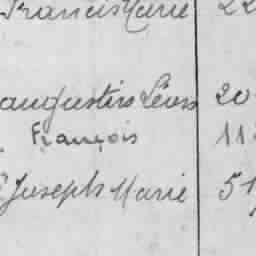 Francis Marie 22
augustin Léon 20
François 11
Joseph Marie 51